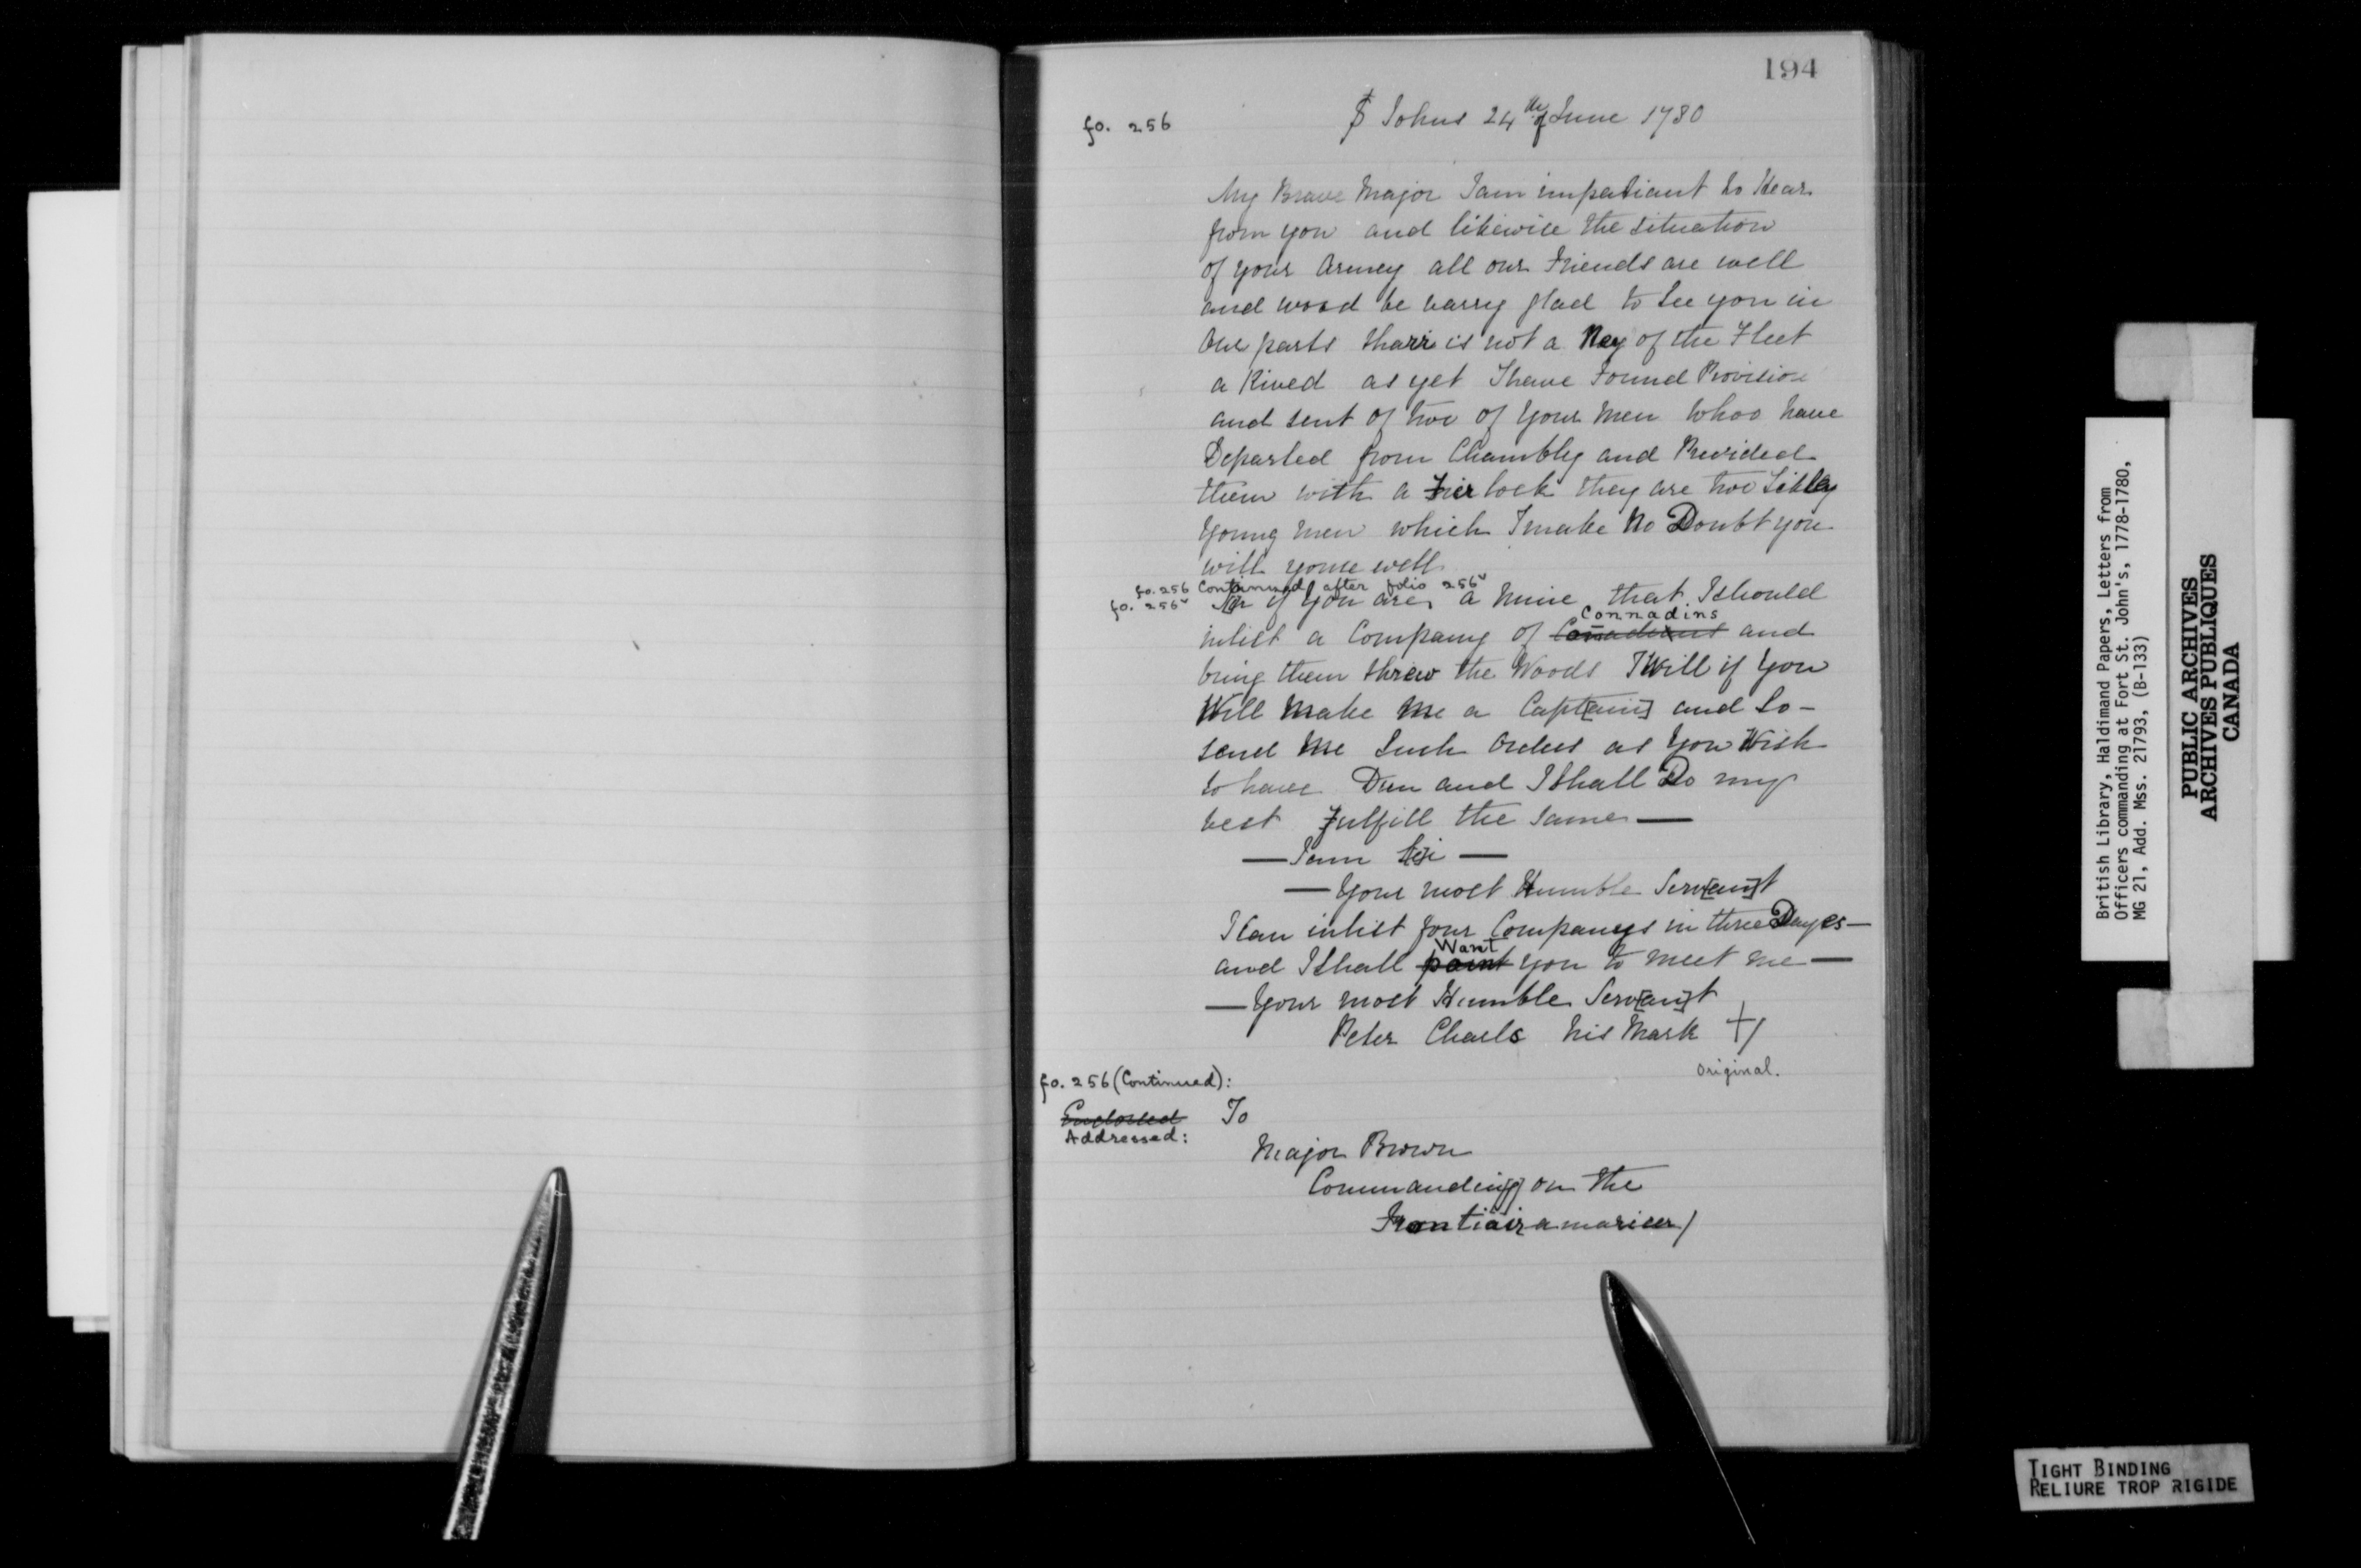 194
fo. 256
St Johns 24th of June 1780
My Brave Major I am impatiant to Hear
from you and likewise the situation
of your Armey all our Friends are well
and wood be varry glad to See you in
Our parts tharr is not a Ney of the Fleet
a Rived as yet I have Found Provision
and sent of two of Your Men whoo have
Departed from Chambly and Provided
them with a Fier lock they are two Likley
Young men which I make No Doubt you
will youse well
fo. 256 Continued after folio 256v
fo. 256v if You are a mine that I should
Connadins
inlist a Company of Canadians and
bring them threw the Woods I Will if You
Will Make Me a Capt[ain] and So -
send Me Such Orders as You Wish
to have Dun and I Shall Do my
best Fulfill the Same —
— I am Sir —
— Your most Humble Serv[an]t
I Can inlist four Companys in three Dayes —
Want
and I Shall point you to meet me —
— Your most Humble Serv[an]t
Peter Charls his Mark +/
Original.
fo. 256 (Continued):
Endorsed To
Addressed:
Major Brown
Commandin[g] on the
Frontiair amaricer/
British Library, Haldimand Papers, Letters from
Officers commanding at Fort St. John's, 1778-1780,
MG 21, Add. Mss. 21793, (B-133)
PUBLIC ARCHIVES
ARCHIVES PUBLIQUES
CANADA
TIGHT BINDING
RELIURE TROP RIGIDE